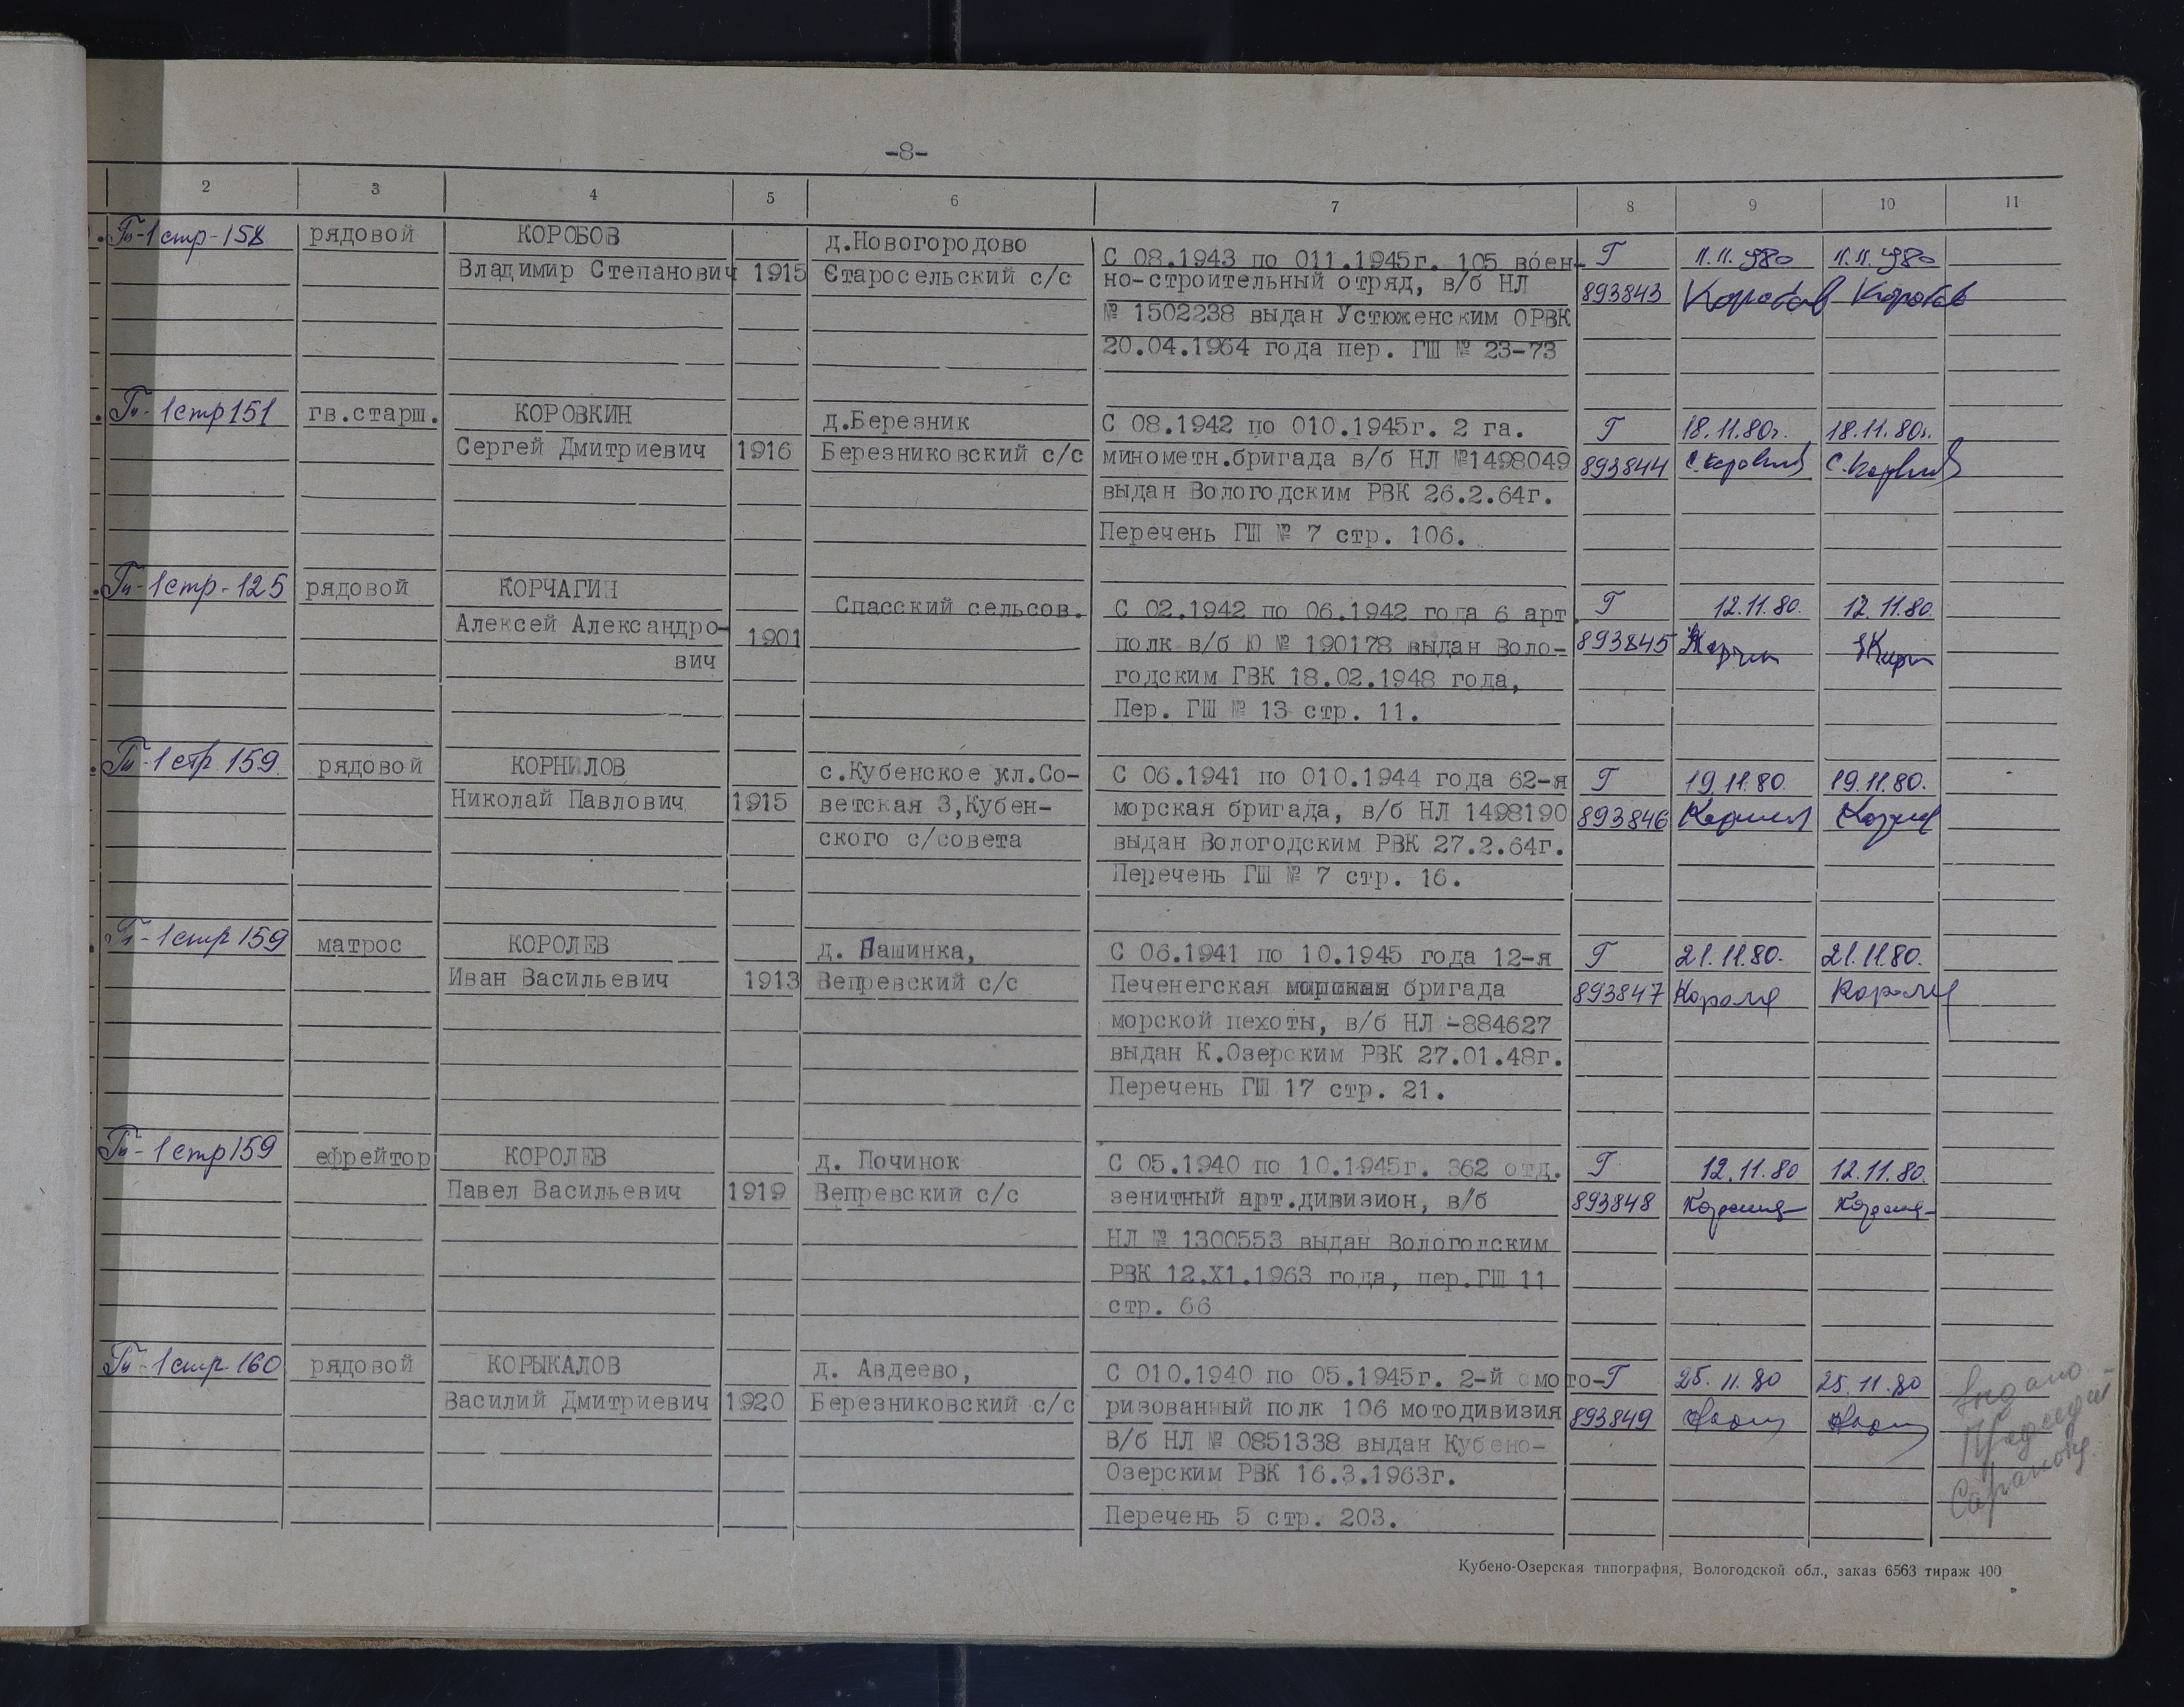 -8-
2 3 4 5 6 7 8 9 10 11
Гп-1 стр-158 рядовой КОРОБОВ д.Новогородово С 08.1943 по 011.1945г. 105 воен- Г 11.11.980 11.11.980
Владимир Степанович 1915 Старосельский с/с но-строительный отряд, в/б НЛ 893843 Коробов Коробов
№ 1502238 выдан Устюженским ОРВК
20.04.1964 года пер. ГШ № 23-73
Гп-1 стр 151 гв.старш. КОРОВКИН д.Березник С 08.1942 по 010.1945г. 2 га. Г 18.11.80г. 18.11.80г.
Сергей Дмитриевич 1916 Березниковский с/с минометн.бригада в/б НЛ №1498049 893844
выдан Вологодским РВК 26.2.64г.
Перечень ГШ № 7 стр. 106.
Гп-1 стр-125 рядовой КОРЧАГИН Спасский сельсов. С 02.1942 по 06.1942 года 6 арт. Г 12.11.80. 12.11.80.
Алексей Александро- 1901 полк в/б Ю № 190178 выдан Воло- 893845
вич годским ГВК 18.02.1948 года,
Пер. ГШ № 13 стр. 11.
Гп-1 стр. 159. рядовой КОРНИЛОВ с.Кубенское ул.Со- С 06.1941 по 010.1944 года 62-я Г 19.11.80. 19.11.80.
Николай Павлович 1915 ветская 3,Кубен- морская бригада, в/б НЛ 1498190 893846
ского с/совета выдан Вологодским РВК 27.2.64г.
Перечень ГШ № 7 стр. 16.
Гп-1 стр 159 матрос КОРОЛЕВ д. Пашинка, С 06.1941 по 10.1945 года 12-я Г 21.11.80. 21.11.80.
Иван Васильевич 1913 Вепревский с/с Печенегская бригада 893847
морской пехоты, в/б НЛ -884627
выдан К.Озерским РВК 27.01.48г.
Перечень ГШ 17 стр. 21.
Гп-1 стр 159 ефрейтор КОРОЛЕВ д. Починок С 05.1940 по 10.1945г. 362 отд. Г 12.11.80 12.11.80.
Павел Васильевич 1919 Вепревский с/с зенитный арт.дивизион, в/б 893848
НЛ № 1300553 выдан Вологодским
РВК 12.Х1.1963 года, пер.ГШ 11
стр. 66
Гп-1 стр 160 рядовой КОРЫКАЛОВ д. Авдеево, С 010.1940 по 05.1945г. 2-й мото- Г 25.11.80 25.11.80
Василий Дмитриевич 1920 Березниковский с/с ризованный полк 106 мотодивизия 893849
В/б НЛ № 0851338 выдан Кубено-
Озерским РВК 16.3.1963г.
Перечень 5 стр. 203.
Кубено-Озерская типография, Вологодской обл., заказ 6563 тираж 400